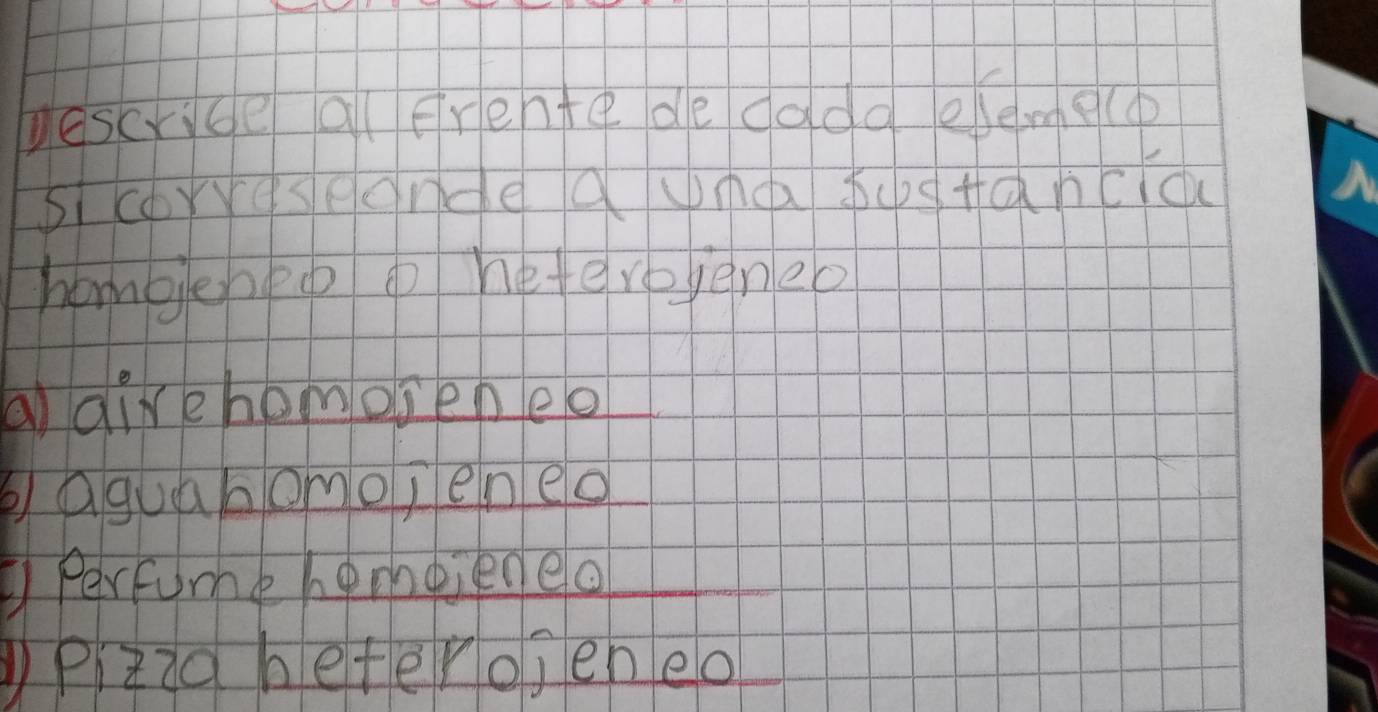 Describe al frente de cada ejemplo
si corresponde a una sustancia
homojeneo o heterojeneo
a) aire homojeneo
b) agua homojeneo
c) Perfume homojeneo
d) Pizza heterojeneo